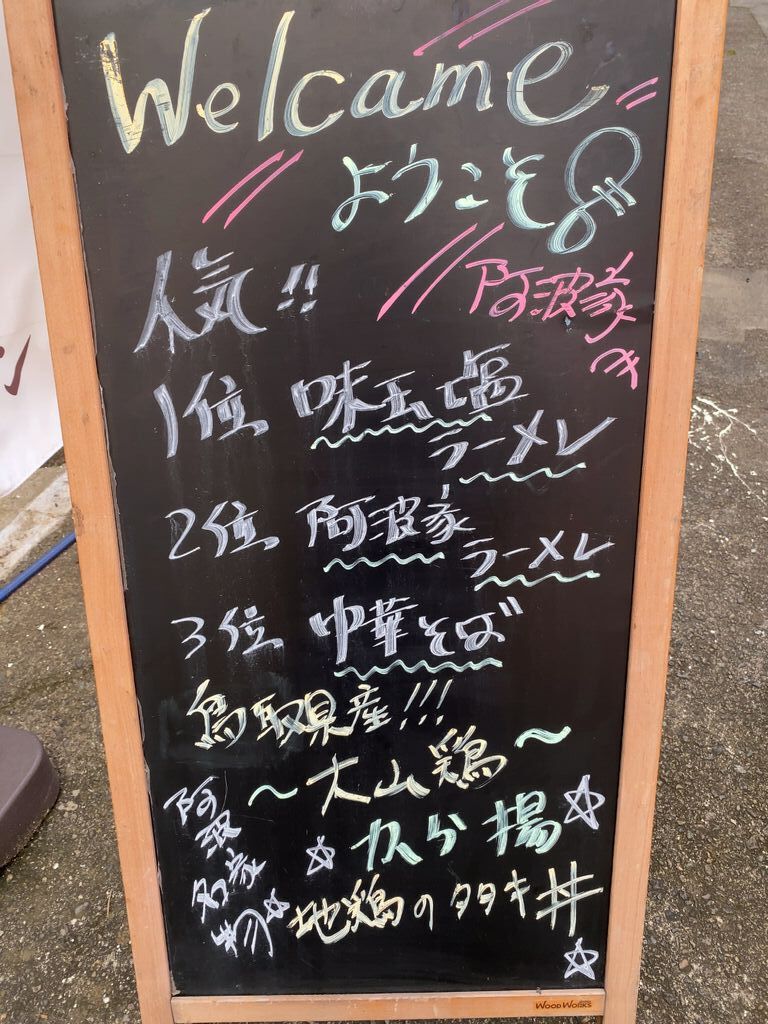 Welcame
ようこそ
人気!!
阿波家
つき
1位 味玉塩
ラーメン
2位 阿波家
ラーメン
3位 中華そば
鳥取県産!!!
～大山鶏～
から揚
阿波家名物
地鶏のタタキ丼
WOOD WORKS